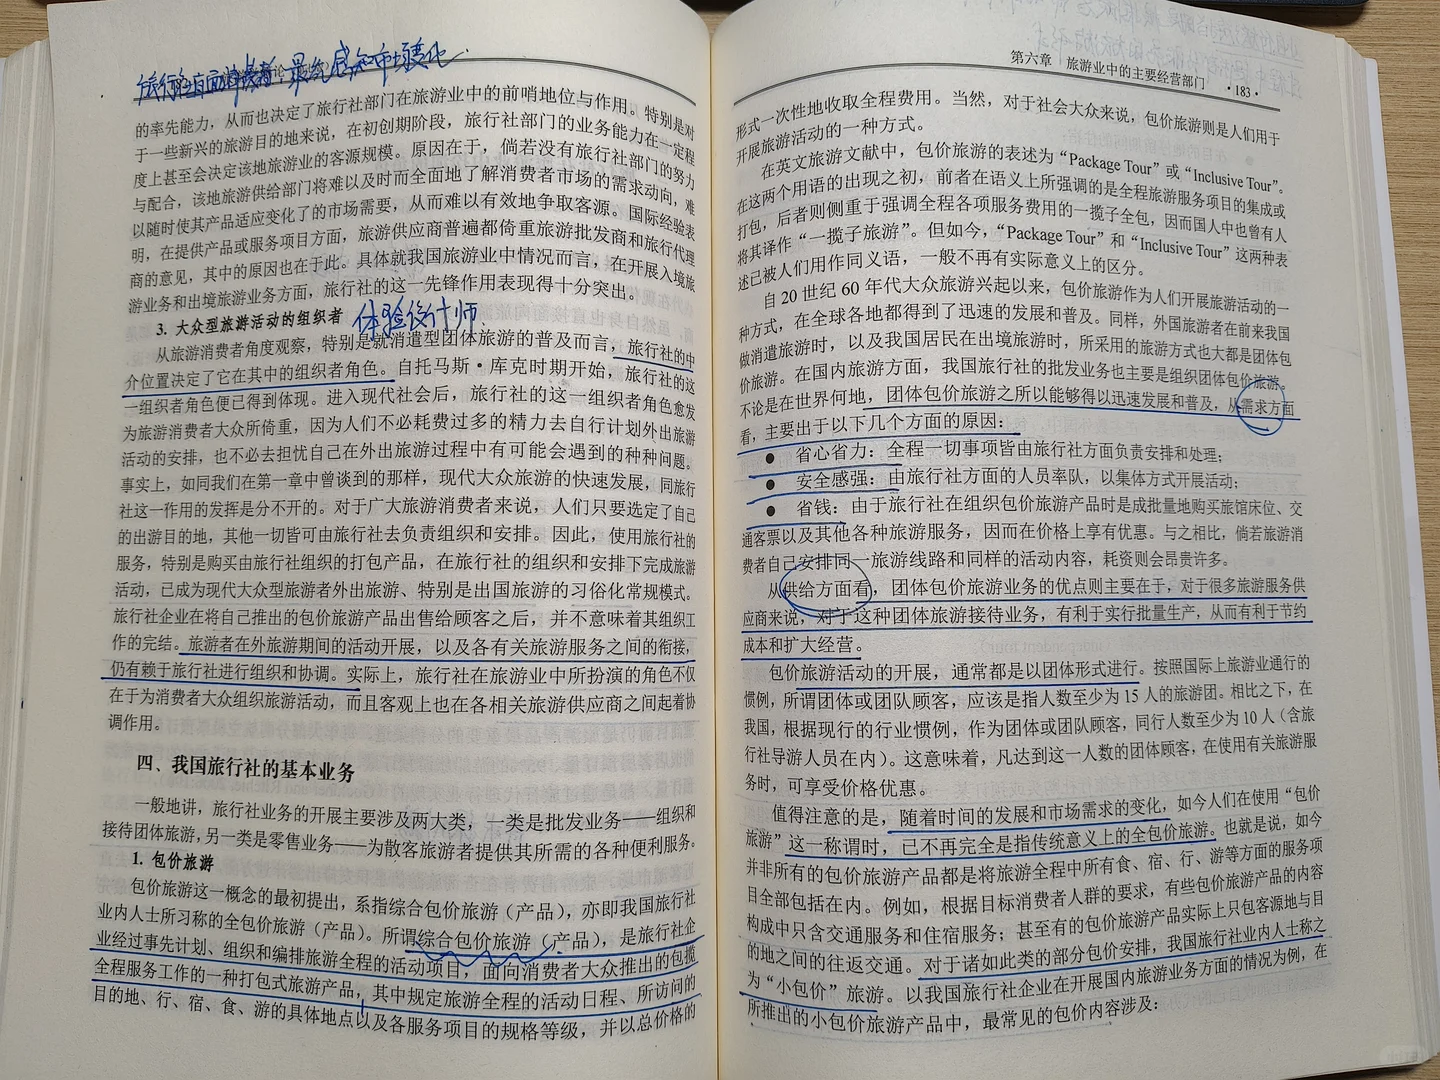 旅行社直面游客，最先感知市场变化
的率先能力，从而也决定了旅行社部门在旅游业中的前哨地位与作用。特别是对
于一些新兴的旅游目的地来说，在初创期阶段，旅行社部门的业务能力在一定程
度上甚至会决定该地旅游业的客源规模。原因在于，倘若没有旅行社部门的努力
与配合，该地旅游供给部门将难以及时而全面地了解消费者市场的需求动向，难
以随时使其产品适应变化了的市场需要，从而难以有效地争取客源。国际经验表
明，在提供产品或服务项目方面，旅游供应商普遍都倚重旅游批发商和旅行代理
商的意见，其中的原因也在于此。具体就我国旅游业中情况而言，在开展入境旅
游业务和出境旅游业务方面，旅行社的这一先锋作用表现得十分突出。
3. 大众型旅游活动的组织者 体验设计师
从旅游消费者角度观察，特别是就消遣型团体旅游的普及而言，旅行社的中
介位置决定了它在其中的组织者角色。自托马斯·库克时期开始，旅行社的这
一组织者角色便已得到体现。进入现代社会后，旅行社的这一组织者角色愈发
为旅游消费者大众所倚重，因为人们不必耗费过多的精力去自行计划外出旅游
活动的安排，也不必去担忧自己在外出旅游过程中有可能会遇到的种种问题。
事实上，如同我们在第一章中曾谈到的那样，现代大众旅游的快速发展，同旅行
社这一作用的发挥是分不开的。对于广大旅游消费者来说，人们只要选定了自己
的出游目的地，其他一切皆可由旅行社去负责组织和安排。因此，使用旅行社的
服务，特别是购买由旅行社组织的打包产品，在旅行社的组织和安排下完成旅游
活动，已成为现代大众型旅游者外出旅游、特别是出国旅游的习俗化常规模式。
旅行社企业在将自己推出的包价旅游产品出售给顾客之后，并不意味着其组织工
作的完结。旅游者在外旅游期间的活动开展，以及各有关旅游服务之间的衔接，
仍有赖于旅行社进行组织和协调。实际上，旅行社在旅游业中所扮演的角色不仅
在于为消费者大众组织旅游活动，而且客观上也在各相关旅游供应商之间起着协
调作用。
四、我国旅行社的基本业务
一般地讲，旅行社业务的开展主要涉及两大类，一类是批发业务——组织和
接待团体旅游，另一类是零售业务——为散客旅游者提供其所需的各种便利服务。
1. 包价旅游
包价旅游这一概念的最初提出，系指综合包价旅游（产品），亦即我国旅行社
业内人士所习称的全包价旅游（产品）。所谓综合包价旅游（产品），是旅行社企
业经过事先计划、组织和编排旅游全程的活动项目，面向消费者大众推出的包揽
全程服务工作的一种打包式旅游产品，其中规定旅游全程的活动日程、所访问的
目的地、行、宿、食、游的具体地点以及各服务项目的规格等级，并以总价格的
第六章 旅游业中的主要经营部门 ·183·
形式一次性地收取全程费用。当然，对于社会大众来说，包价旅游则是人们用于
开展旅游活动的一种方式。
在英文旅游文献中，包价旅游的表述为“Package Tour”或“Inclusive Tour”。
在这两个用语的出现之初，前者在语义上所强调的是全程旅游服务项目的集成或
打包，后者则侧重于强调全程各项服务费用的一揽子全包，因而国人中也曾有人
将其译作“一揽子旅游”。但如今，“Package Tour”和“Inclusive Tour”这两种表
述已被人们用作同义语，一般不再有实际意义上的区分。
自 20 世纪 60 年代大众旅游兴起以来，包价旅游作为人们开展旅游活动的一
种方式，在全球各地都得到了迅速的发展和普及。同样，外国旅游者在前来我国
做消遣旅游时，以及我国居民在出境旅游时，所采用的旅游方式也大都是团体包
价旅游。在国内旅游方面，我国旅行社的批发业务也主要是组织团体包价旅游。
不论是在世界何地，团体包价旅游之所以能够得以迅速发展和普及，从需求方面
看，主要出于以下几个方面的原因：
● 省心省力：全程一切事项皆由旅行社方面负责安排和处理；
● 安全感强：由旅行社方面的人员率队，以集体方式开展活动；
● 省钱：由于旅行社在组织包价旅游产品时是成批量地购买旅馆床位、交
通客票以及其他各种旅游服务，因而在价格上享有优惠。与之相比，倘若旅游消
费者自己安排同一旅游线路和同样的活动内容，耗资则会昂贵许多。
从供给方面看，团体包价旅游业务的优点则主要在于，对于很多旅游服务供
应商来说，对于这种团体旅游接待业务，有利于实行批量生产，从而有利于节约
成本和扩大经营。
包价旅游活动的开展，通常都是以团体形式进行。按照国际上旅游业通行的
惯例，所谓团体或团队顾客，应该是指人数至少为 15 人的旅游团。相比之下，在
我国，根据现行的行业惯例，作为团体或团队顾客，同行人数至少为 10 人（含旅
行社导游人员在内）。这意味着，凡达到这一人数的团体顾客，在使用有关旅游服
务时，可享受价格优惠。
值得注意的是，随着时间的发展和市场需求的变化，如今人们在使用“包价
旅游”这一称谓时，已不再完全是指传统意义上的全包价旅游。也就是说，如今
并非所有的包价旅游产品都是将旅游全程中所有食、宿、行、游等方面的服务项
目全部包括在内。例如，根据目标消费者人群的要求，有些包价旅游产品的内容
构成中只含交通服务和住宿服务；甚至有的包价旅游产品实际上只包客源地与目
的地之间的往返交通。对于诸如此类的部分包价安排，我国旅行社业内人士称之
为“小包价”旅游。以我国旅行社企业在开展国内旅游业务方面的情况为例，在
所推出的小包价旅游产品中，最常见的包价内容涉及：